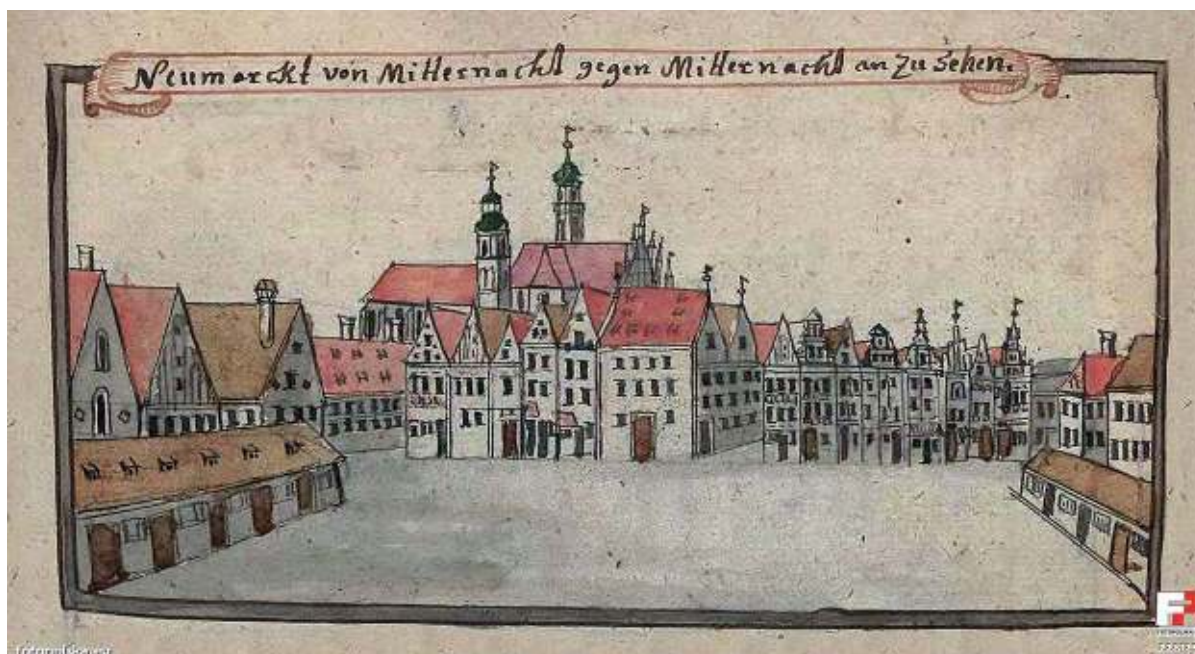 Neumarckt von Mitternacht gegen Mitternacht an zu sehen.
fotopolska.eu